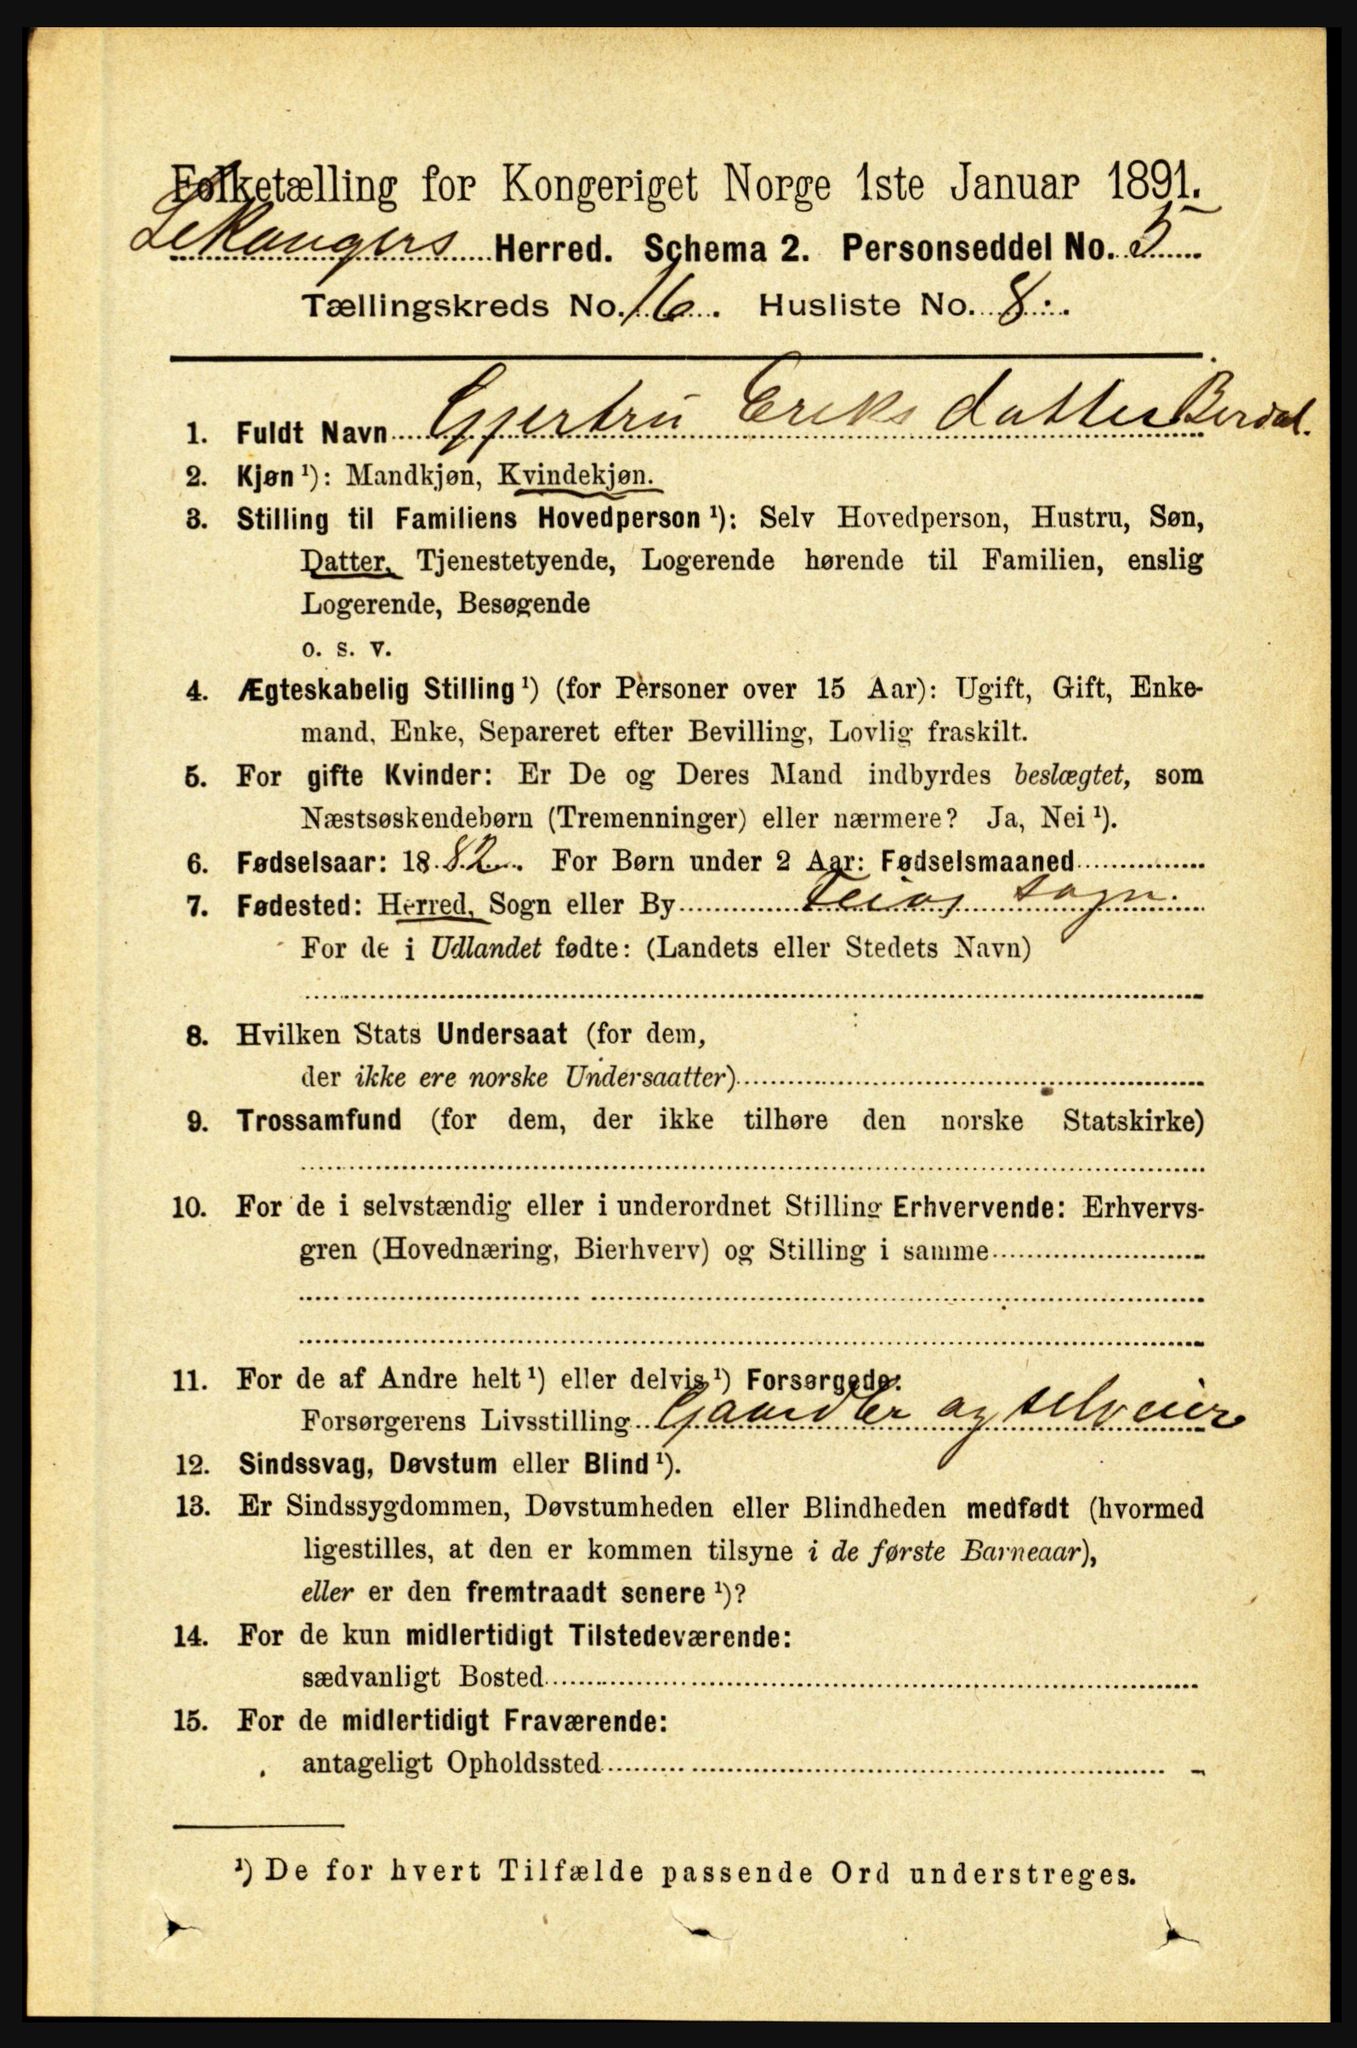 Folketælling for Kongeriget Norge 1ste Januar 1891.
Lekangers Herred. Schema 2. Personseddel No. 5
Tællingskreds No. 16. Husliste No. 8.
1. Fuldt Navn Gjertru Eriksdatter Berdal.
2. Kjøn¹): Mandkjøn, Kvindekjøn.
3. Stilling til Familiens Hovedperson¹): Selv Hovedperson, Hustru, Søn,
Datter, Tjenestetyende, Logerende hørende til Familien, enslig
Logerende, Besøgende
o. s. v.
4. Ægteskabelig Stilling¹) (for Personer over 15 Aar): Ugift, Gift, Enke-
mand, Enke, Separeret efter Bevilling, Lovlig fraskilt.
5. For gifte Kvinder: Er De og Deres Mand indbyrdes beslægtet, som
Næstsøskendebørn (Tremenninger) eller nærmere? Ja, Nei¹).
6. Fødselsaar: 1882. For Børn under 2 Aar: Fødselsmaaned
7. Fødested: Herred, Sogn eller By Feios sogn.
For de i Udlandet fødte: (Landets eller Stedets Navn)
8. Hvilken Stats Undersaat (for dem,
der ikke ere norske Undersaatter)
9. Trossamfund (for dem, der ikke tilhøre den norske Statskirke)
10. For de i selvstændig eller i underordnet Stilling Erhvervende: Erhvervs-
gren (Hovednæring, Bierhverv) og Stilling i samme
11. For de af Andre helt¹) eller delvis¹) Forsørgede:
Forsørgerens Livsstilling Gaardbr og selveier
12. Sindssvag, Døvstum eller Blind¹).
13. Er Sindssygdommen, Døvstumheden eller Blindheden medfødt (hvormed
ligestilles, at den er kommen tilsyne i de første Barneaar),
eller er den fremtraadt senere¹)?
14. For de kun midlertidigt Tilstedeværende:
sædvanligt Bosted
15. For de midlertidigt Fraværende:
antageligt Opholdssted
¹) De for hvert Tilfælde passende Ord understreges.